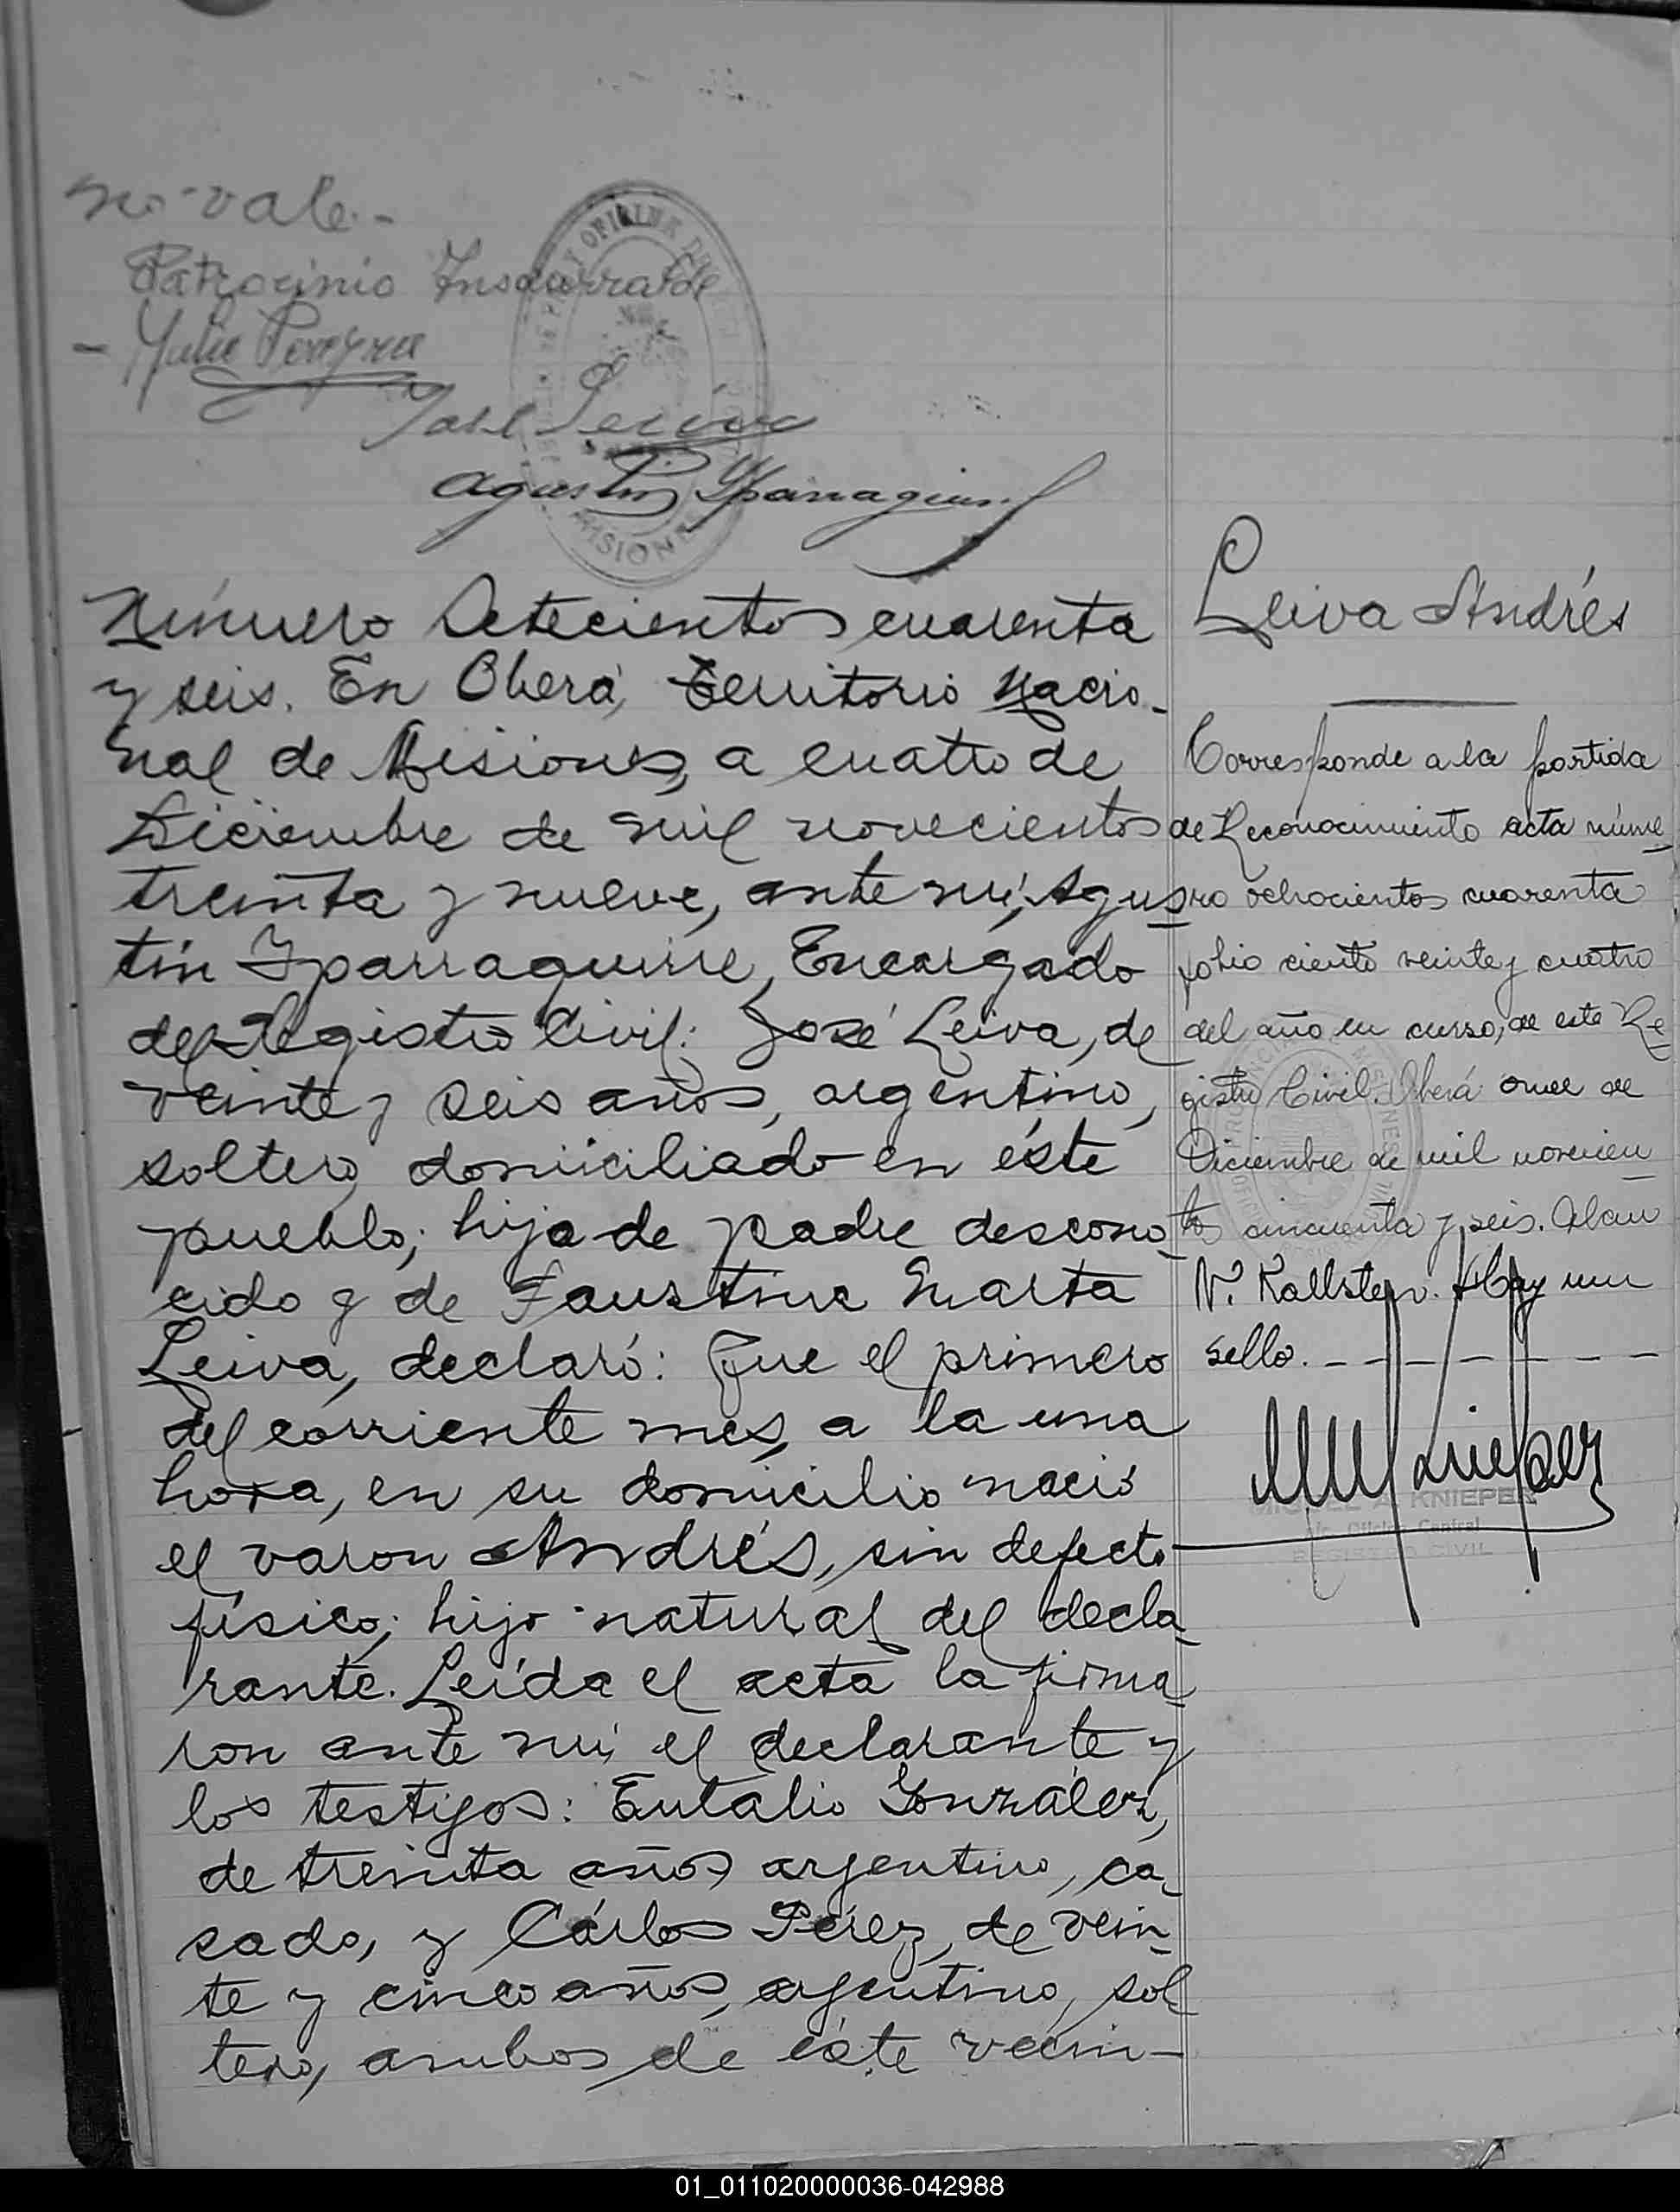 no vale.-
Patrocinio Insaurralde
- Julio Pereyra
José Leiva
Agustín Yparraguirre
MISIONES
Número Setecientos cuarenta
y seis. En Oberá, Territorio Nacio-
nal de Misiones, a cuatro de
Diciembre de mil novecientos
treinta y nueve, ante mí, Agus-
tín Yparraguirre, Encargado
del Registro Civil: José Leiva, de
veinte y seis años, argentino,
soltero, domiciliado en éste
pueblo; hijo de padre descono-
cido y de Faustina Marta
Leiva, declaró: Que el primero
del corriente mes, a la una
hora, en su domicilio nació
el varon Andrés, sin defecto
físico; hijo natural del decla-
rante. Leída el acta la firma-
ron ante mí, el declarante y
los testigos: Eutalio González,
de treinta años argentino, ca-
sado, y Cárlos Pérez, de vein-
te y cinco años, argentino, sol-
tero, ambos de éste vecin-
Leiva Andrés
Corresponde a la partida
de Reconocimiento acta núme-
ro ochocientos cuarenta
folio ciento veinte y cuatro
del año en curso, de este Re-
gistro Civil. Oberá once de
Diciembre de mil novecien-
tos cincuenta y seis. Alan
N. Kallsten. Hay un
sello. - - - - - - -
MIGUEL A. KNIEPER
Oficina Central
REGISTRO CIVIL
01_011020000036-042988